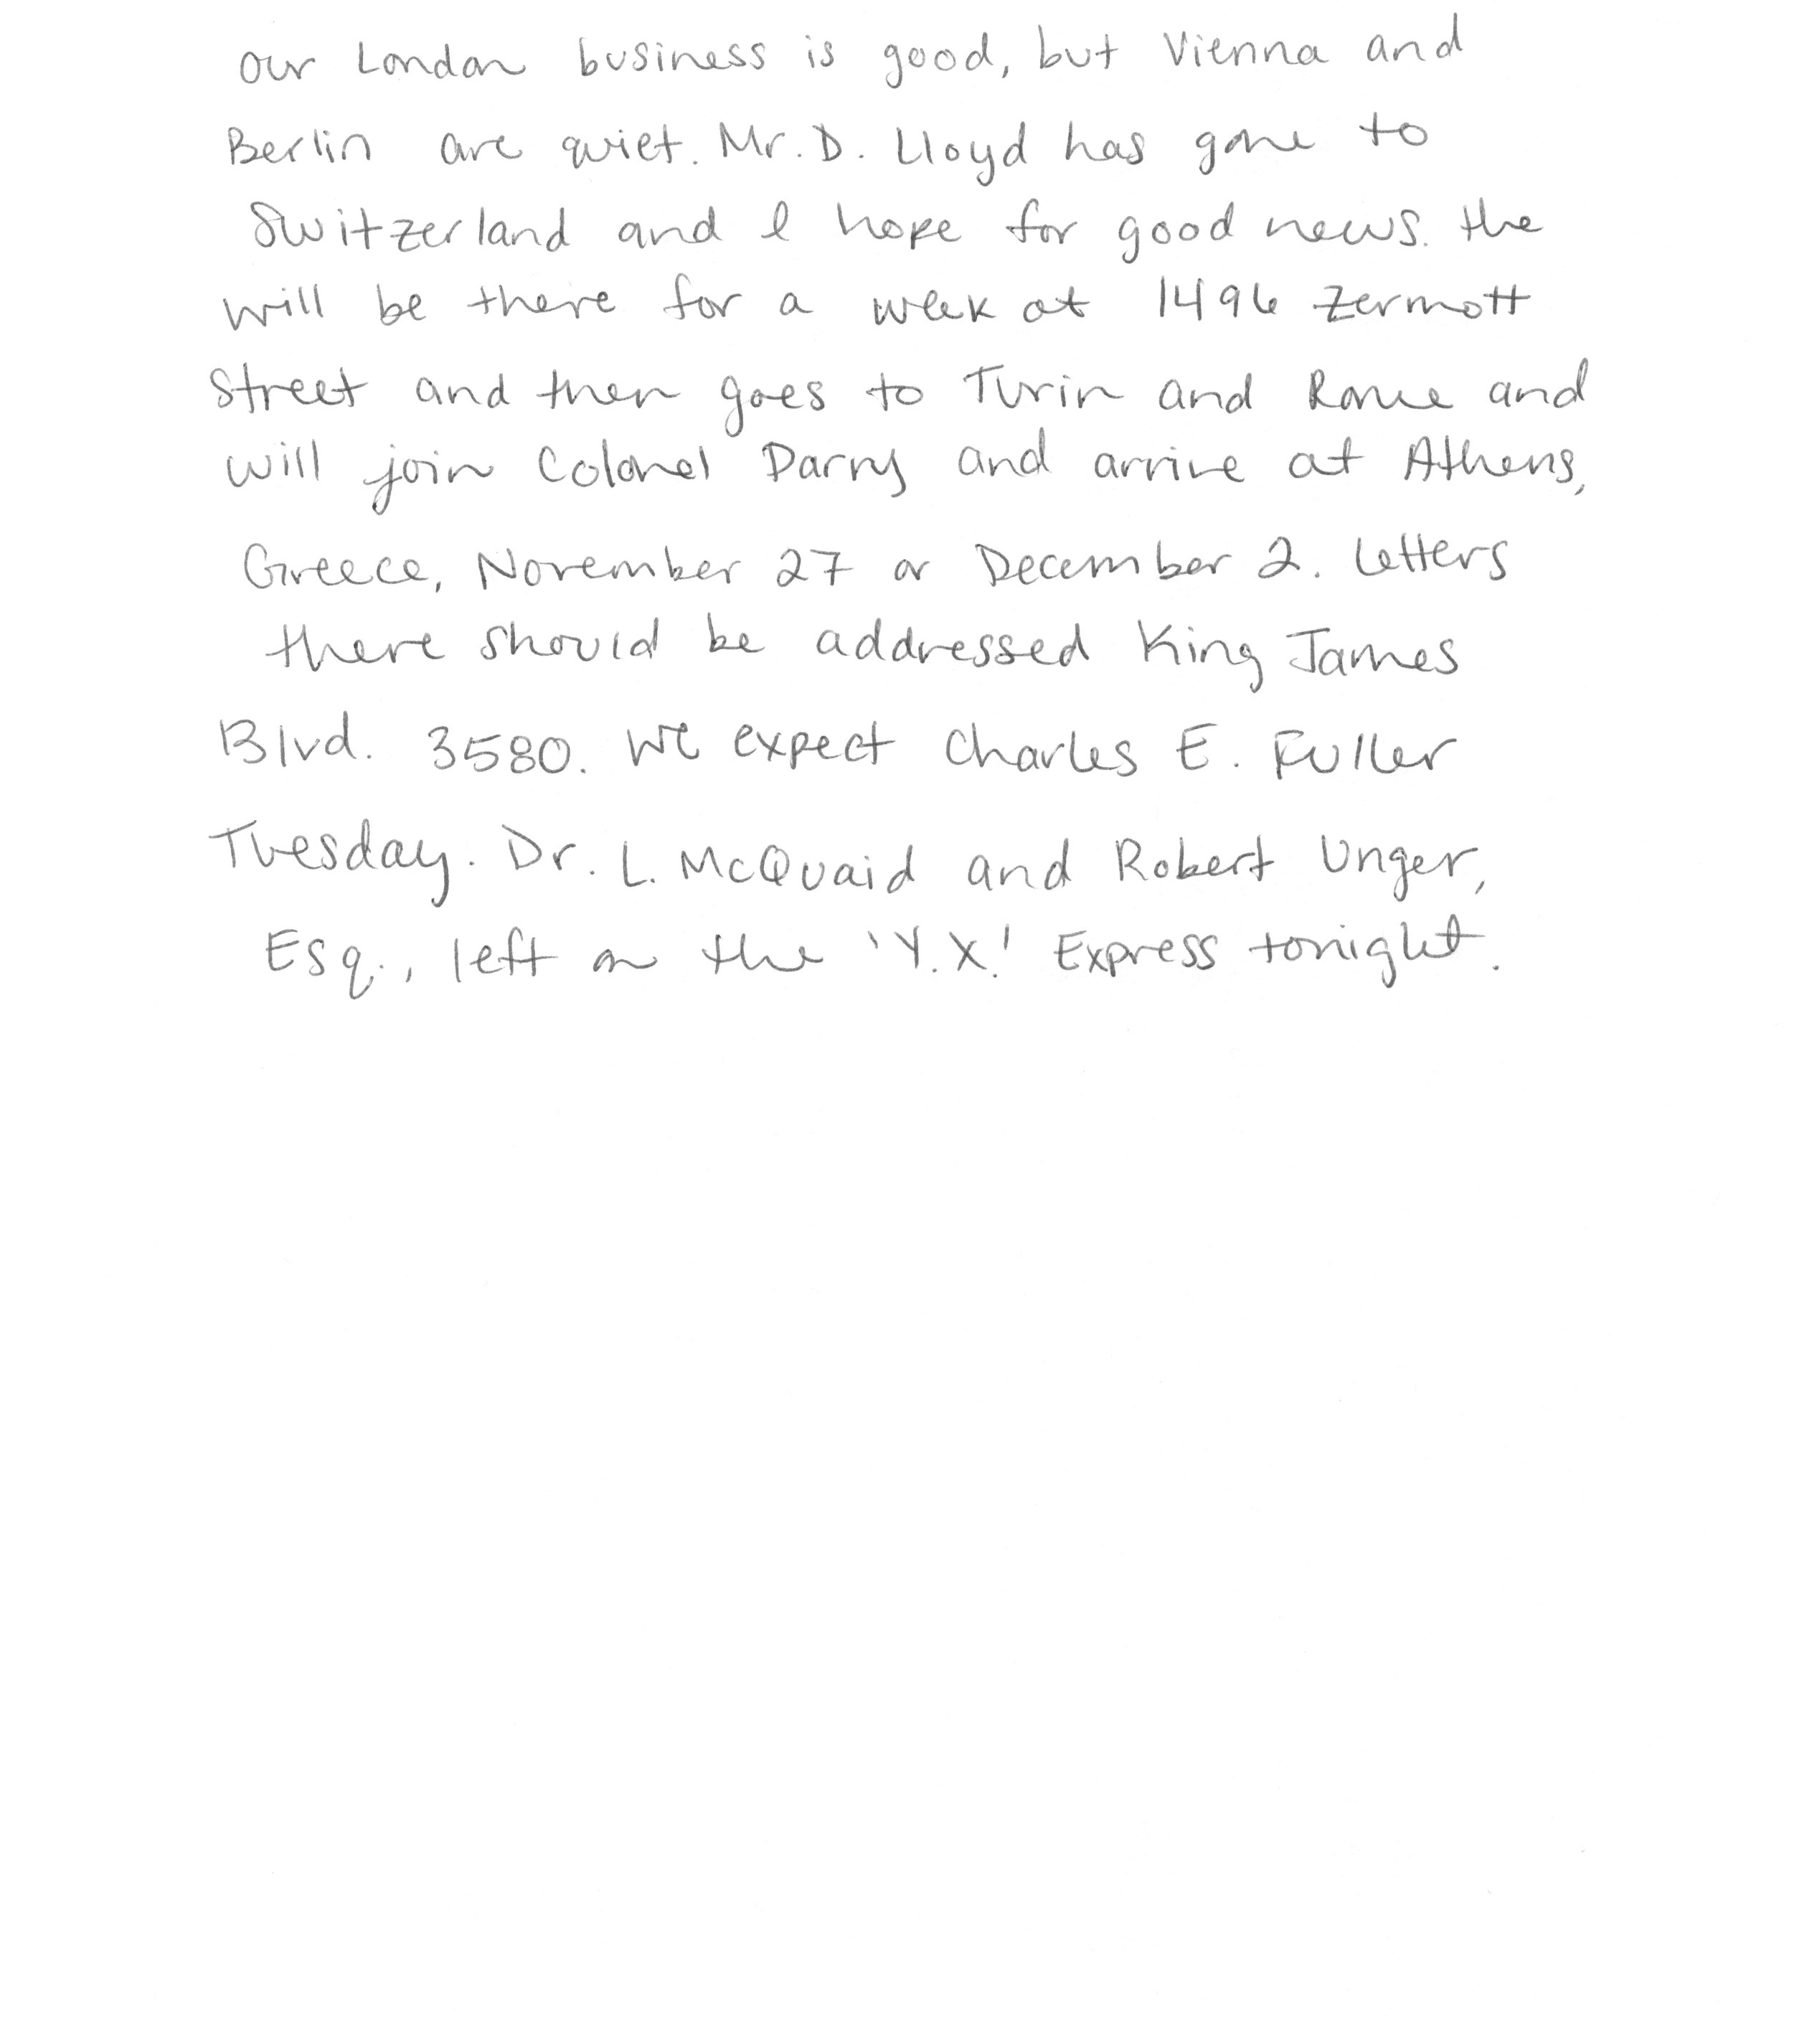 our London business is good, but Vienna and
Berlin are quiet. Mr. D. Lloyd has gone to
Switzerland and I hope for good news. the
will be there for a week at 1496 Zermott
Street and then goes to Turin and Rome and
will join Colonel Parry and arrive at Athens,
Greece, November 27 or December 2. Letters
there should be addressed King James
Blvd. 3580. We expect Charles E. Fuller
Tuesday. Dr. L. McQuaid and Robert Unger,
Esq., left on the 'Y.X.' Express tonight.